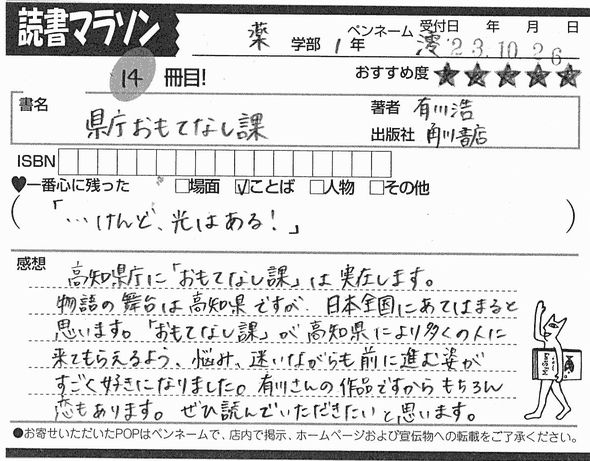 読書マラソン
薬 学部 1年 ペンネーム 澪 受付日 年 月 日
23.10.26
14 冊目! おすすめ度 ★★★★★
書名 県庁おもてなし課
著者 有川浩
出版社 角川書店
ISBN
♥一番心に残った □場面 ☑ことば □人物 □その他
(「…けんど、光はある!」)
感想
高知県庁に「おもてなし課」は実在します。
物語の舞台は高知県ですが、日本全国にあてはまると
思います。「おもてなし課」が高知県により多くの人に
来てもらえるよう、悩み、迷いながらも前に進む姿が
すごく好きになりました。有川さんの作品ですからもちろん
恋もあります。ぜひ読んでいただきたいと思います。
●お寄せいただいたPOPはペンネームで、店内で掲示、ホームページおよび宣伝物への転載をご了承ください。